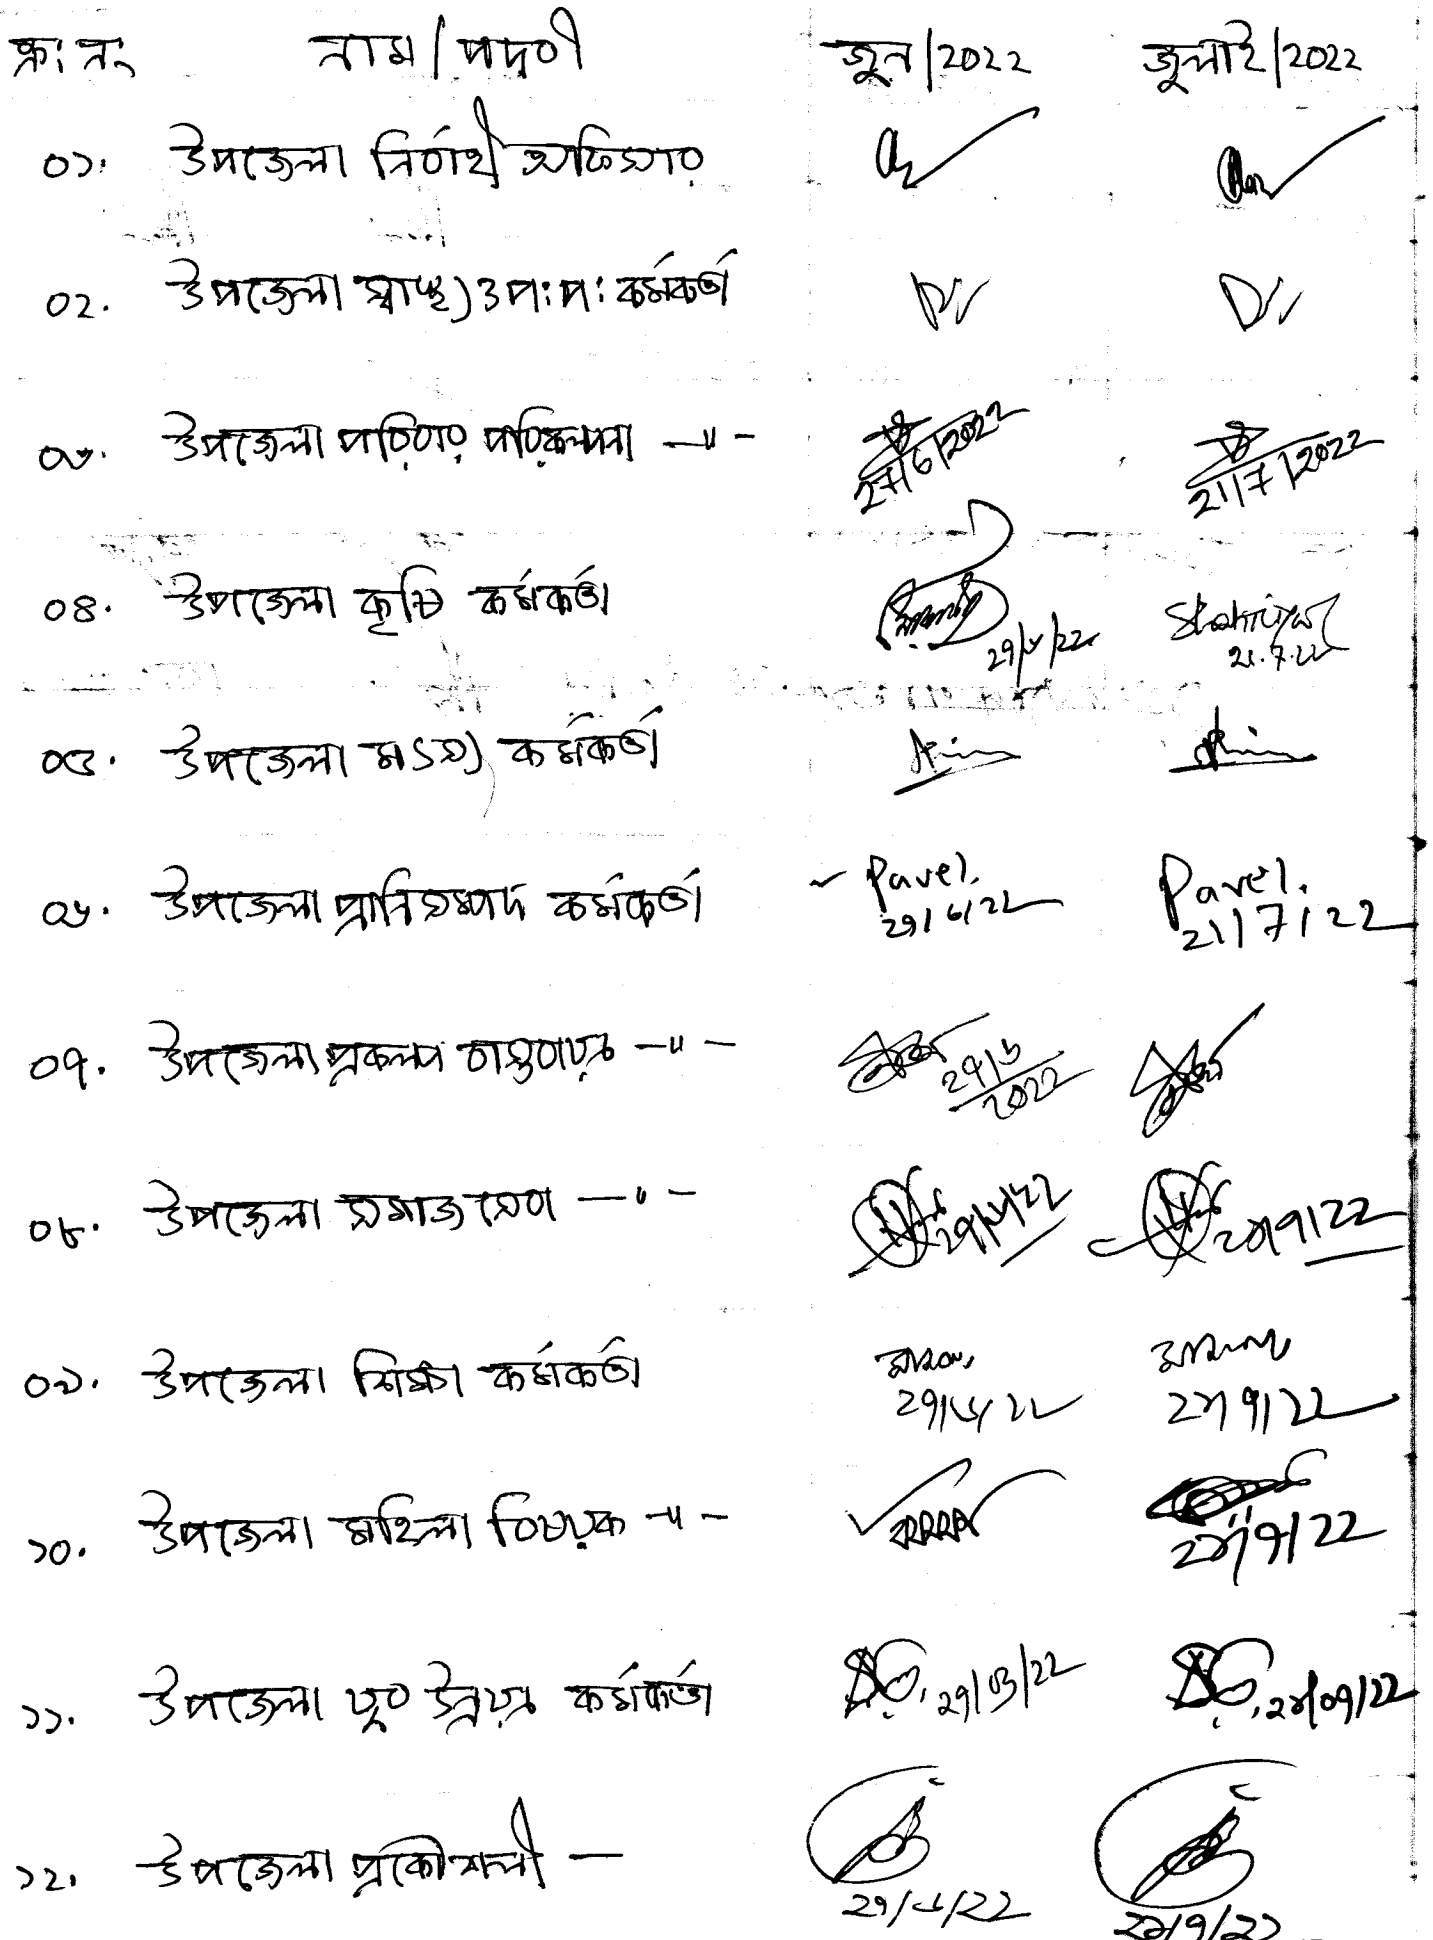 ক্রঃ নং নাম/পদবী জুন/2022 জুলাই/2022
০১. উপজেলা নির্বাহী অফিসার
০২. উপজেলা স্বাস্থ্য ও পঃ পঃ কর্মকর্তা
০৩. উপজেলা পরিবার পরিকল্পনা —"— 27/6/2022 21/7/2022
০৪. উপজেলা কৃষি কর্মকর্তা 29/৬/22 Shahriyar 21.7.22
০৫. উপজেলা মৎস্য কর্মকর্তা
০৬. উপজেলা প্রানিসম্পদ কর্মকর্তা Pavel. 29/6/22 Pavel. 21/7/22
০৭. উপজেলা প্রকল্প বাস্তবায়ন —"— 2৭/৬ 2022
০৮. উপজেলা সমাজসেবা —"— 2৭/৬/22 2১/৭/22
০৯. উপজেলা শিক্ষা কর্মকর্তা 2৭/৬/22 2১/৭/22
১০. উপজেলা মহিলা বিষয়ক —"— 2১/৭/22
১১. উপজেলা যুব উন্নয়ন কর্মকর্তা ২৭/০৬/22 ২১/০৭/22
১২. উপজেলা প্রকৌশলী — 2৭/৬/22 2১/৭/22